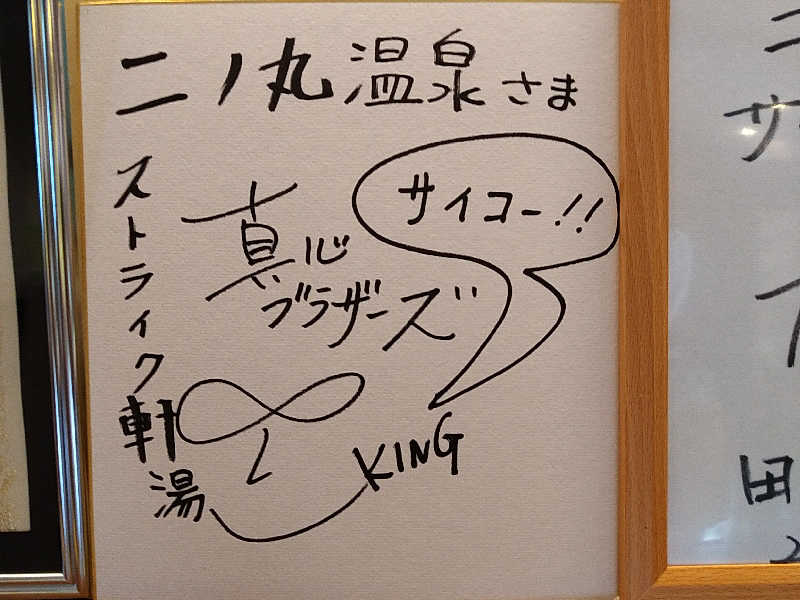 二ノ丸温泉さま
サイコー!!
真心
ブラザーズ
ストライク軒
湯
KING
サ
田